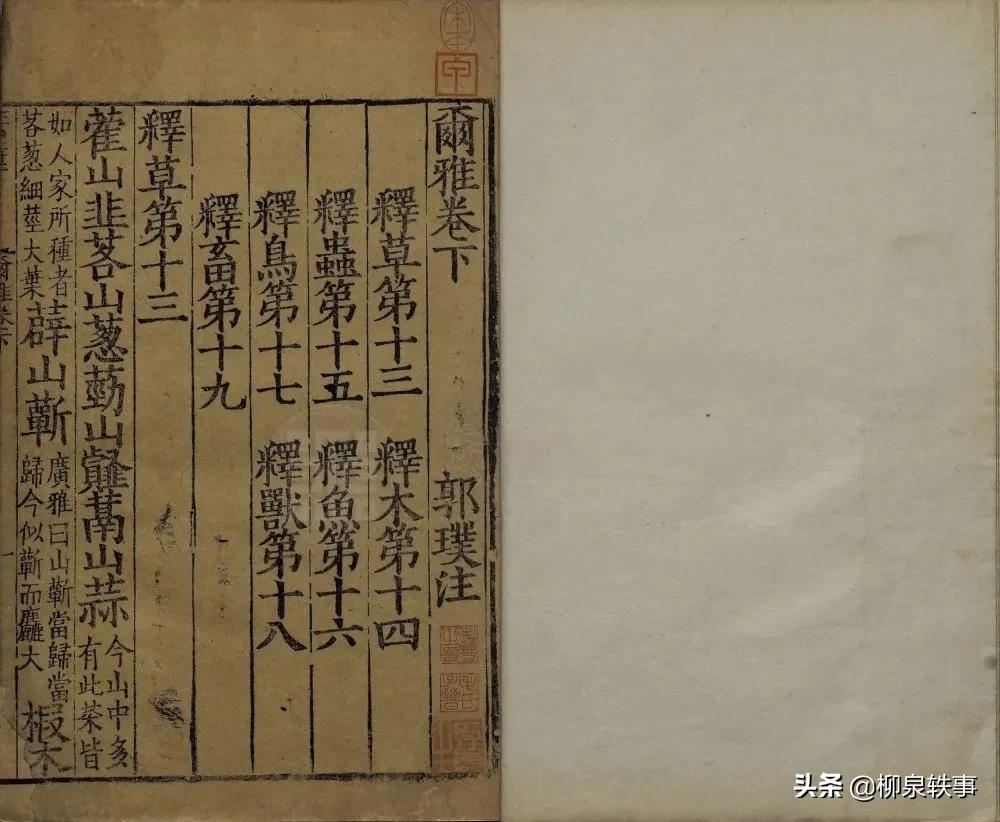 爾雅卷下 郭璞注
釋草第十三 釋木第十四
釋蟲第十五 釋魚第十六
釋鳥第十七 釋獸第十八
釋畜第十九
釋草第十三
藿山韭茖山葱葝山䪥蒚山蒜今山中多有此菜皆
如人家所種者茖葱細莖大葉薜山蘄廣雅曰山蘄當歸當歸今似蘄而麤大椴木
頭条 @柳泉轶事